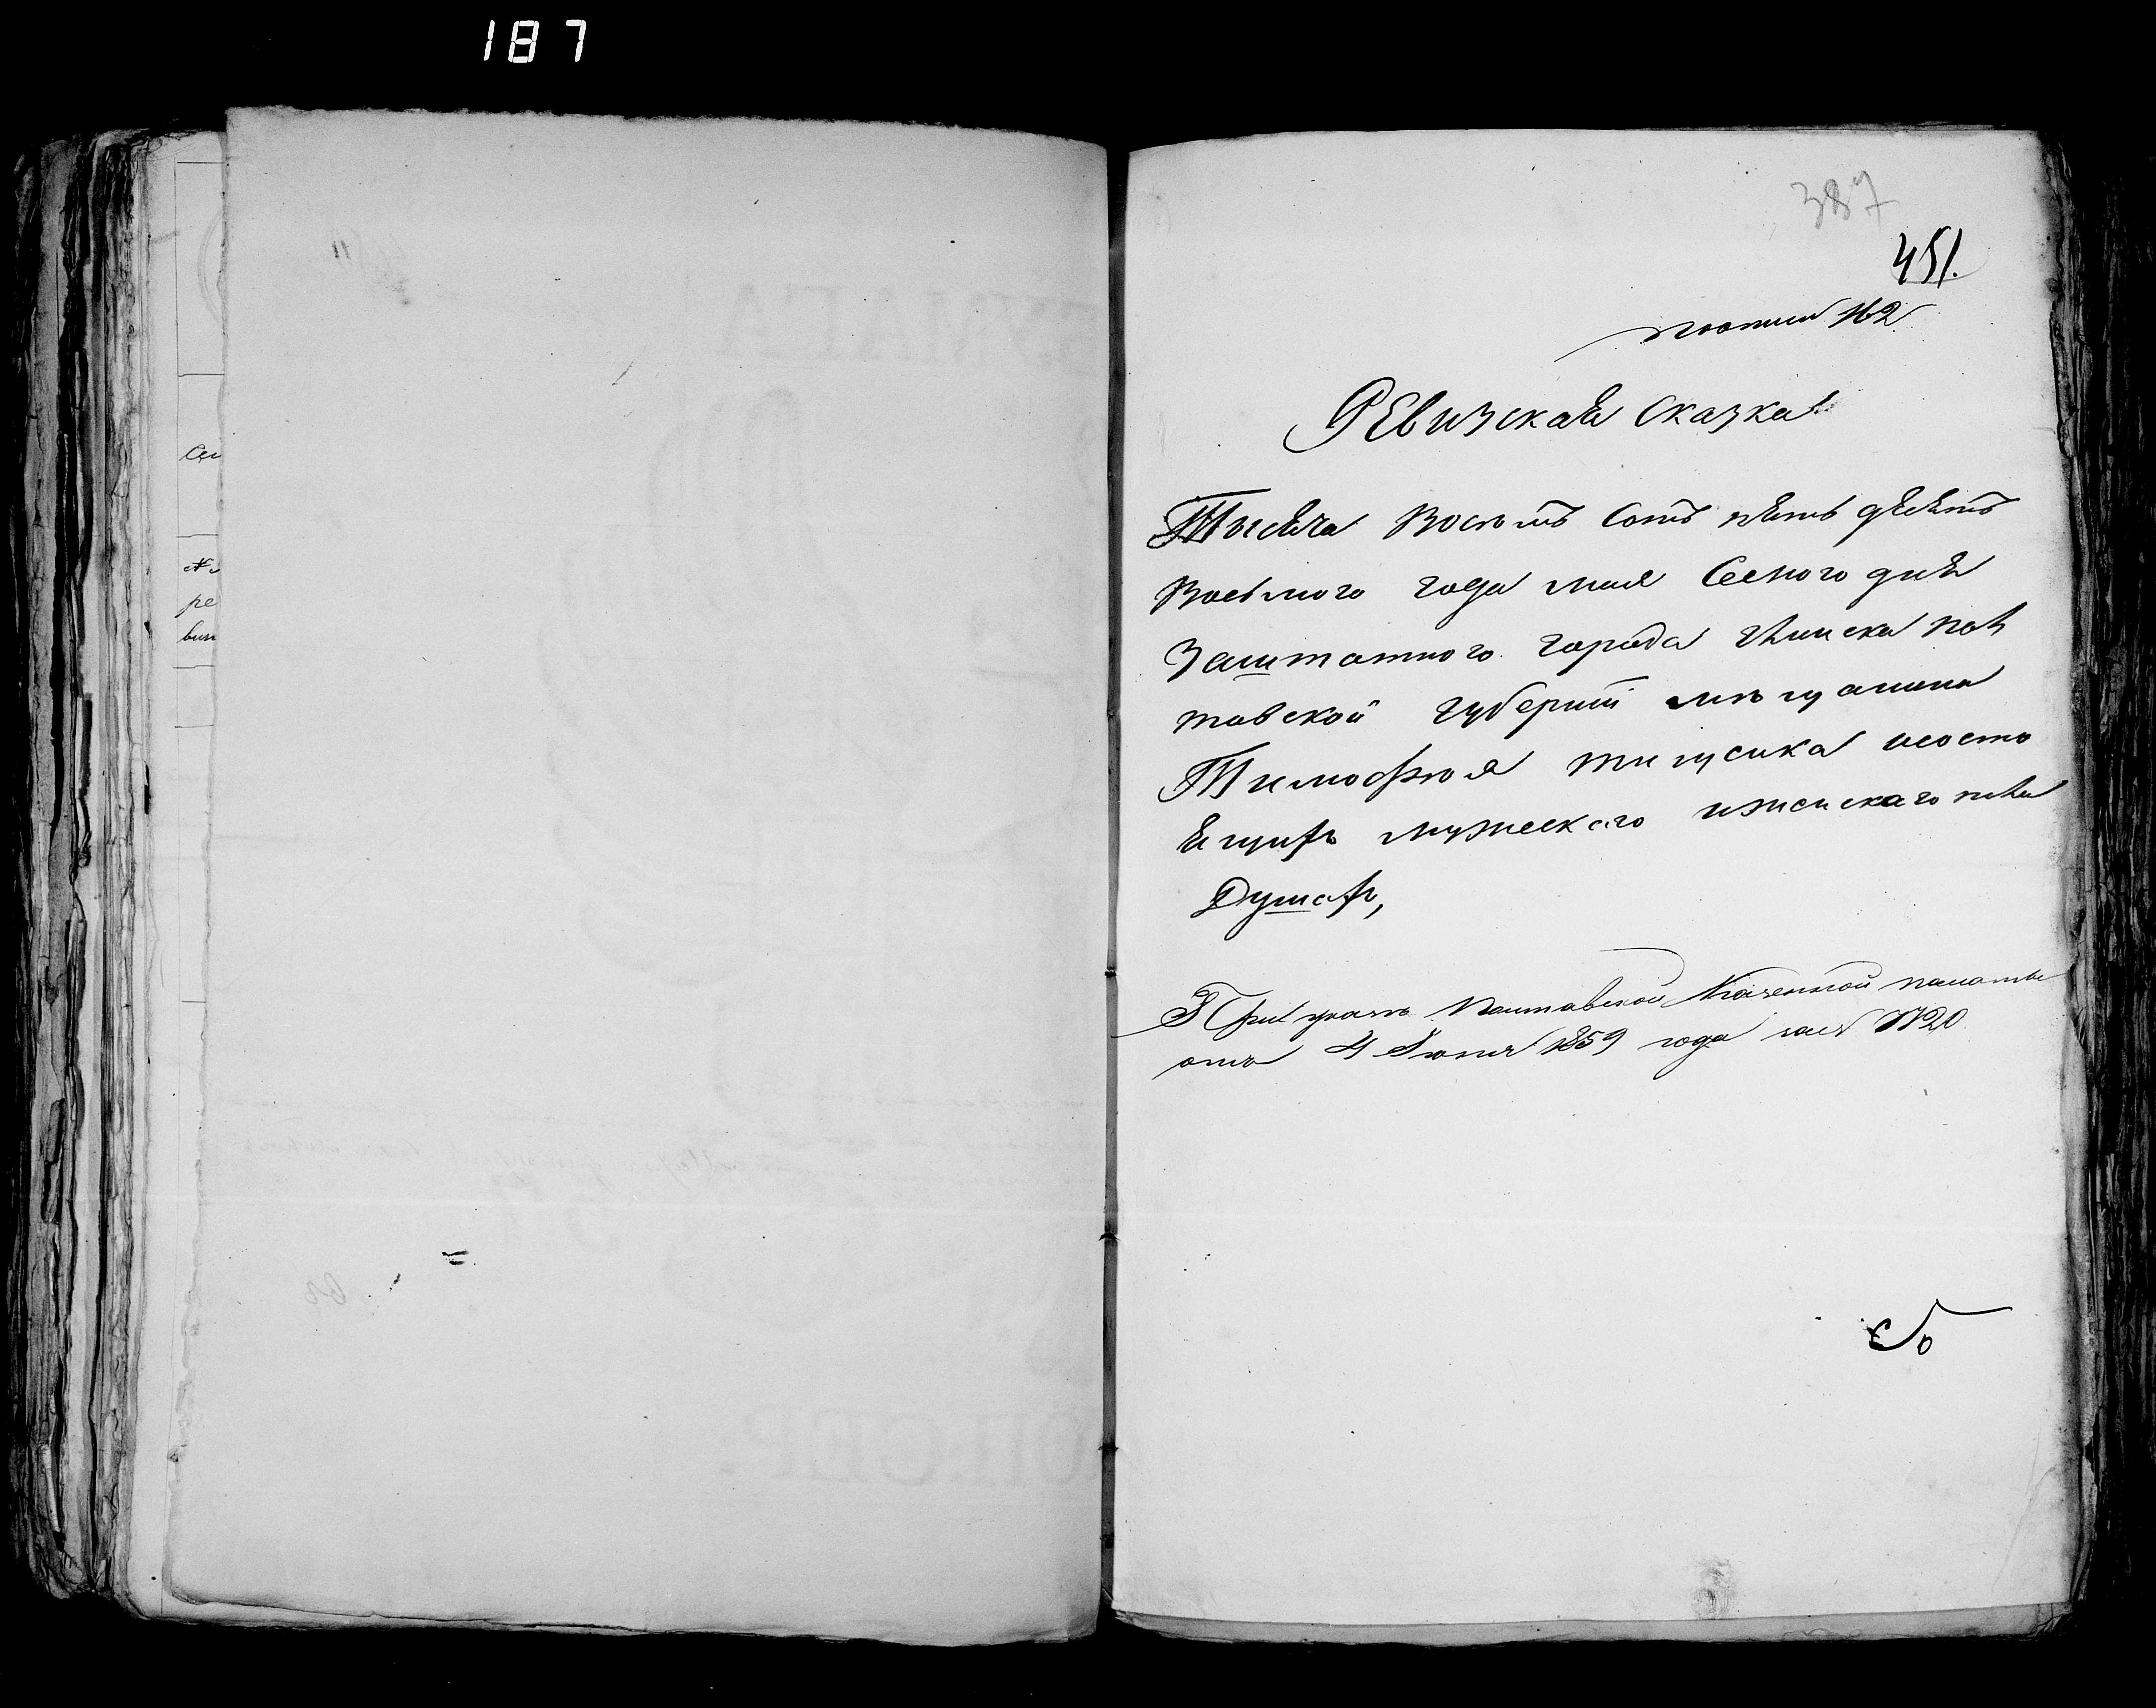 187
387
451.
почты 162
Ревизская сказка
Тысяча восѣмъ сотъ пять десятъ
Восьмого года мая Семого дня
Заштатного города Глинска пол
тавской губерніи мѣщанина
Тимофѣя
ящихъ мужескаго иженскаго пола
Душахъ,
При указѣ Полтавской Казенной палаты
отъ 4 Іюня 1859 года за № 7720